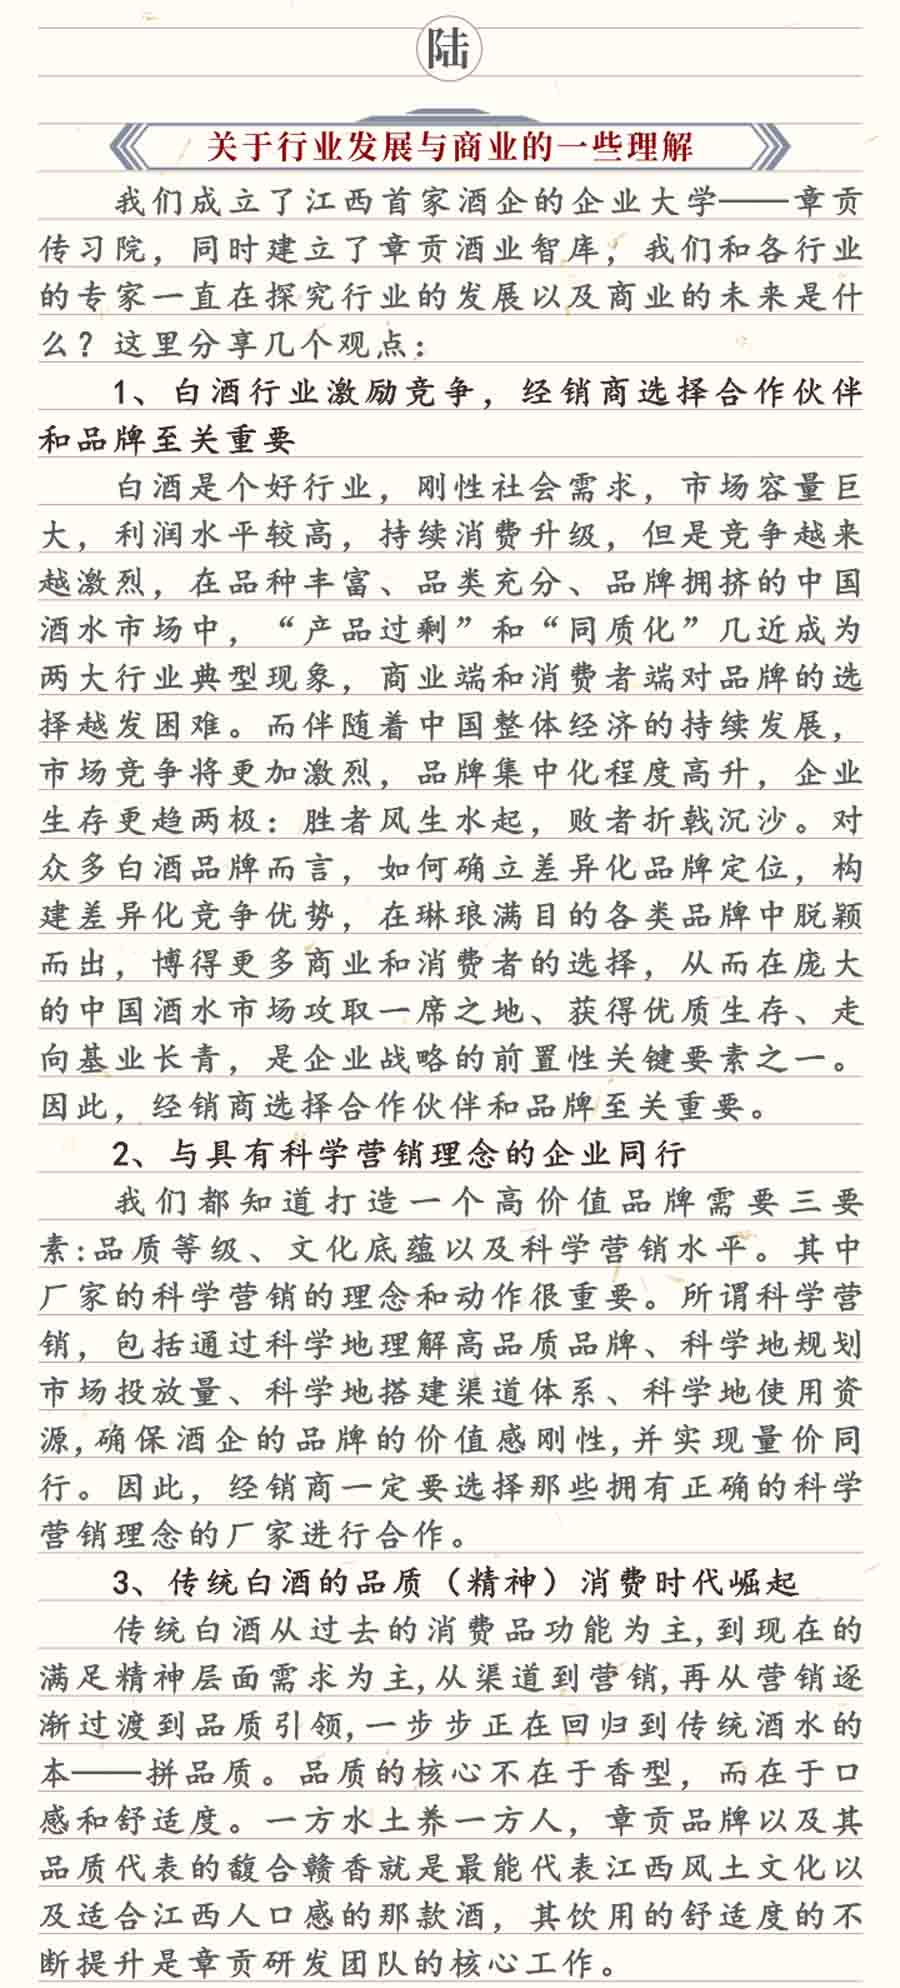 陆
关于行业发展与商业的一些理解
我们成立了江西首家酒企的企业大学——章贡
传习院，同时建立了章贡酒业智库，我们和各行业
的专家一直在探究行业的发展以及商业的未来是什
么？这里分享几个观点：
1、白酒行业激励竞争，经销商选择合作伙伴
和品牌至关重要
白酒是个好行业，刚性社会需求，市场容量巨
大，利润水平较高，持续消费升级，但是竞争越来
越激烈，在品种丰富、品类充分、品牌拥挤的中国
酒水市场中，“产品过剩”和“同质化”几近成为
两大行业典型现象，商业端和消费者端对品牌的选
择越发困难。而伴随着中国整体经济的持续发展，
市场竞争将更加激烈，品牌集中化程度高升，企业
生存更趋两极：胜者风生水起，败者折戟沉沙。对
众多白酒品牌而言，如何确立差异化品牌定位，构
建差异化竞争优势，在琳琅满目的各类品牌中脱颖
而出，博得更多商业和消费者的选择，从而在庞大
的中国酒水市场攻取一席之地、获得优质生存、走
向基业长青，是企业战略的前置性关键要素之一。
因此，经销商选择合作伙伴和品牌至关重要。
2、与具有科学营销理念的企业同行
我们都知道打造一个高价值品牌需要三要
素:品质等级、文化底蕴以及科学营销水平。其中
厂家的科学营销的理念和动作很重要。所谓科学营
销，包括通过科学地理解高品质品牌、科学地规划
市场投放量、科学地搭建渠道体系、科学地使用资
源,确保酒企的品牌的价值感刚性,并实现量价同
行。因此，经销商一定要选择那些拥有正确的科学
营销理念的厂家进行合作。
3、传统白酒的品质（精神）消费时代崛起
传统白酒从过去的消费品功能为主,到现在的
满足精神层面需求为主,从渠道到营销,再从营销逐
渐过渡到品质引领,一步步正在回归到传统酒水的
本——拼品质。品质的核心不在于香型，而在于口
感和舒适度。一方水土养一方人，章贡品牌以及其
品质代表的馥合赣香就是最能代表江西风土文化以
及适合江西人口感的那款酒，其饮用的舒适度的不
断提升是章贡研发团队的核心工作。